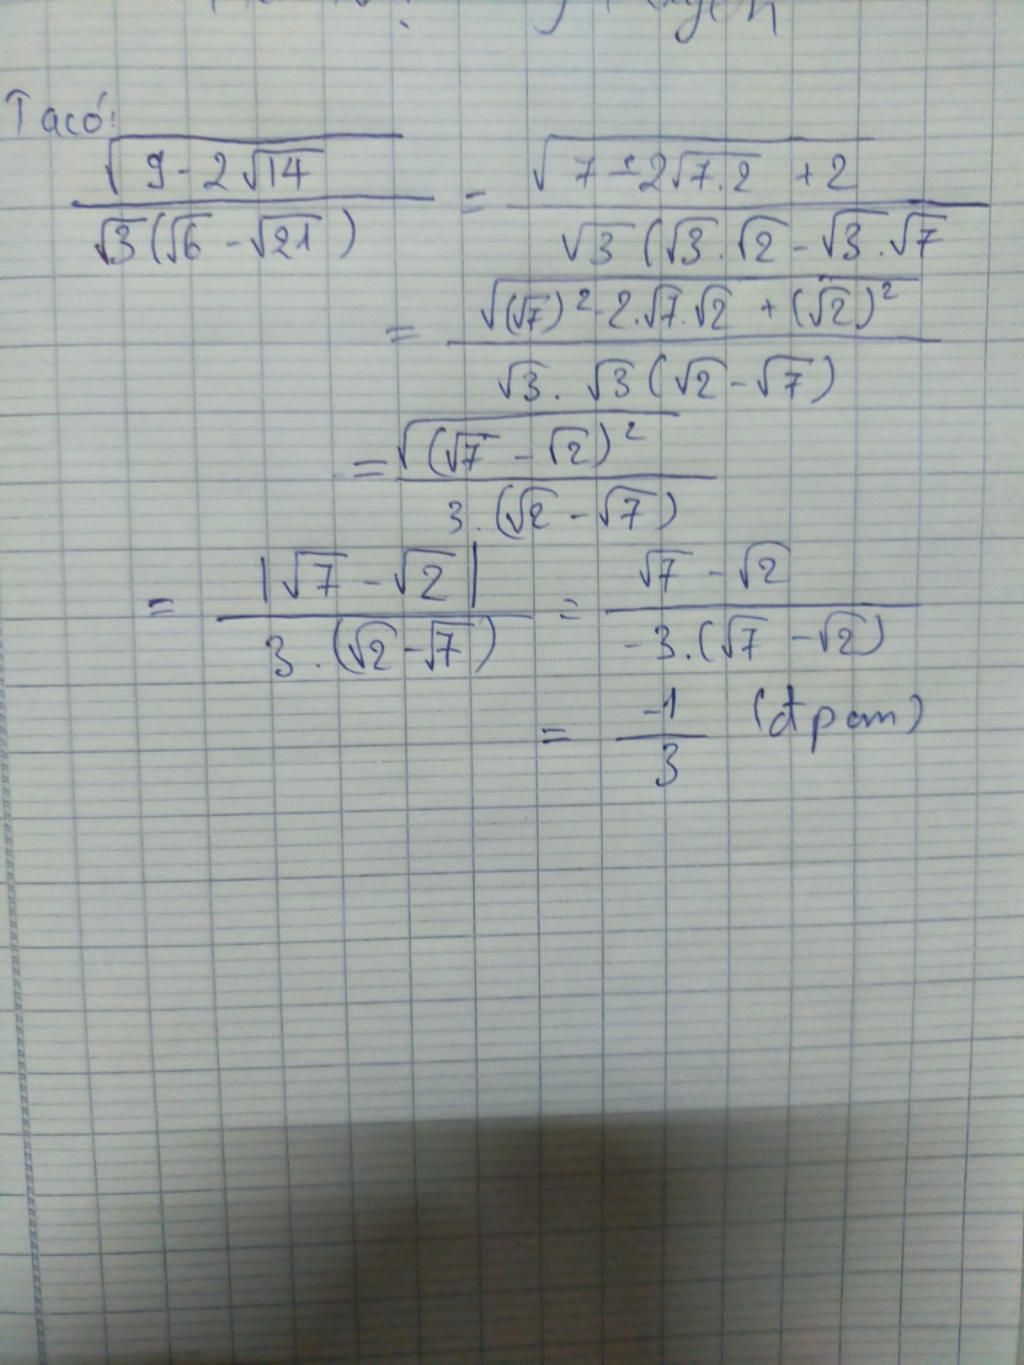 Ta có:
√(9 - 2√14) / √3(√6 - √21) = √(7 - 2√7.2 + 2) / √3(√3.√2 - √3.√7
= √((√7)² - 2.√7.√2 + (√2)²) / √3.√3(√2 - √7)
= √((√7 - √2)²) / 3.(√2 - √7)
= |√7 - √2| / 3.(√2 - √7) = √7 - √2 / -3.(√7 - √2)
= -1 / 3 (đpcm)